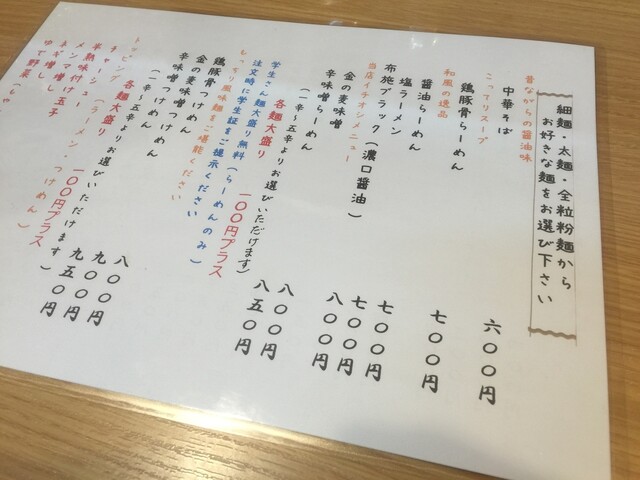 細麺・太麺・全粒粉麺から
お好きな麺をお選び下さい
昔ながらの醤油味
中華そば 六〇〇円
こってりスープ
鶏豚骨らーめん 七〇〇円
和風の逸品
醤油らーめん 七〇〇円
塩ラーメン 七〇〇円
布施ブラック(濃口醤油) 七〇〇円
当店イチオシメニュー
金の麦味噌 八〇〇円
辛味噌らーめん
(一辛〜五辛よりお選びいただけます) 八〇〇円
各麺大盛り 一〇〇円プラス 八五〇円
学生さん麺大盛り無料(らーめんのみ)
注文時に学生証をご提示ください
もっちり風味麺をご堪能ください
鶏豚骨つけめん 八〇〇円
金の麦味噌つけめん 九〇〇円
辛味噌つけめん 九五〇円
(一辛〜五辛よりお選びいただけます)
各麺大盛り 一〇〇円プラス
トッピング(ラーメン・つけめん)
チャーシュー
半熟味付け玉子
メンマ増し
ネギ増し
ゆで野菜